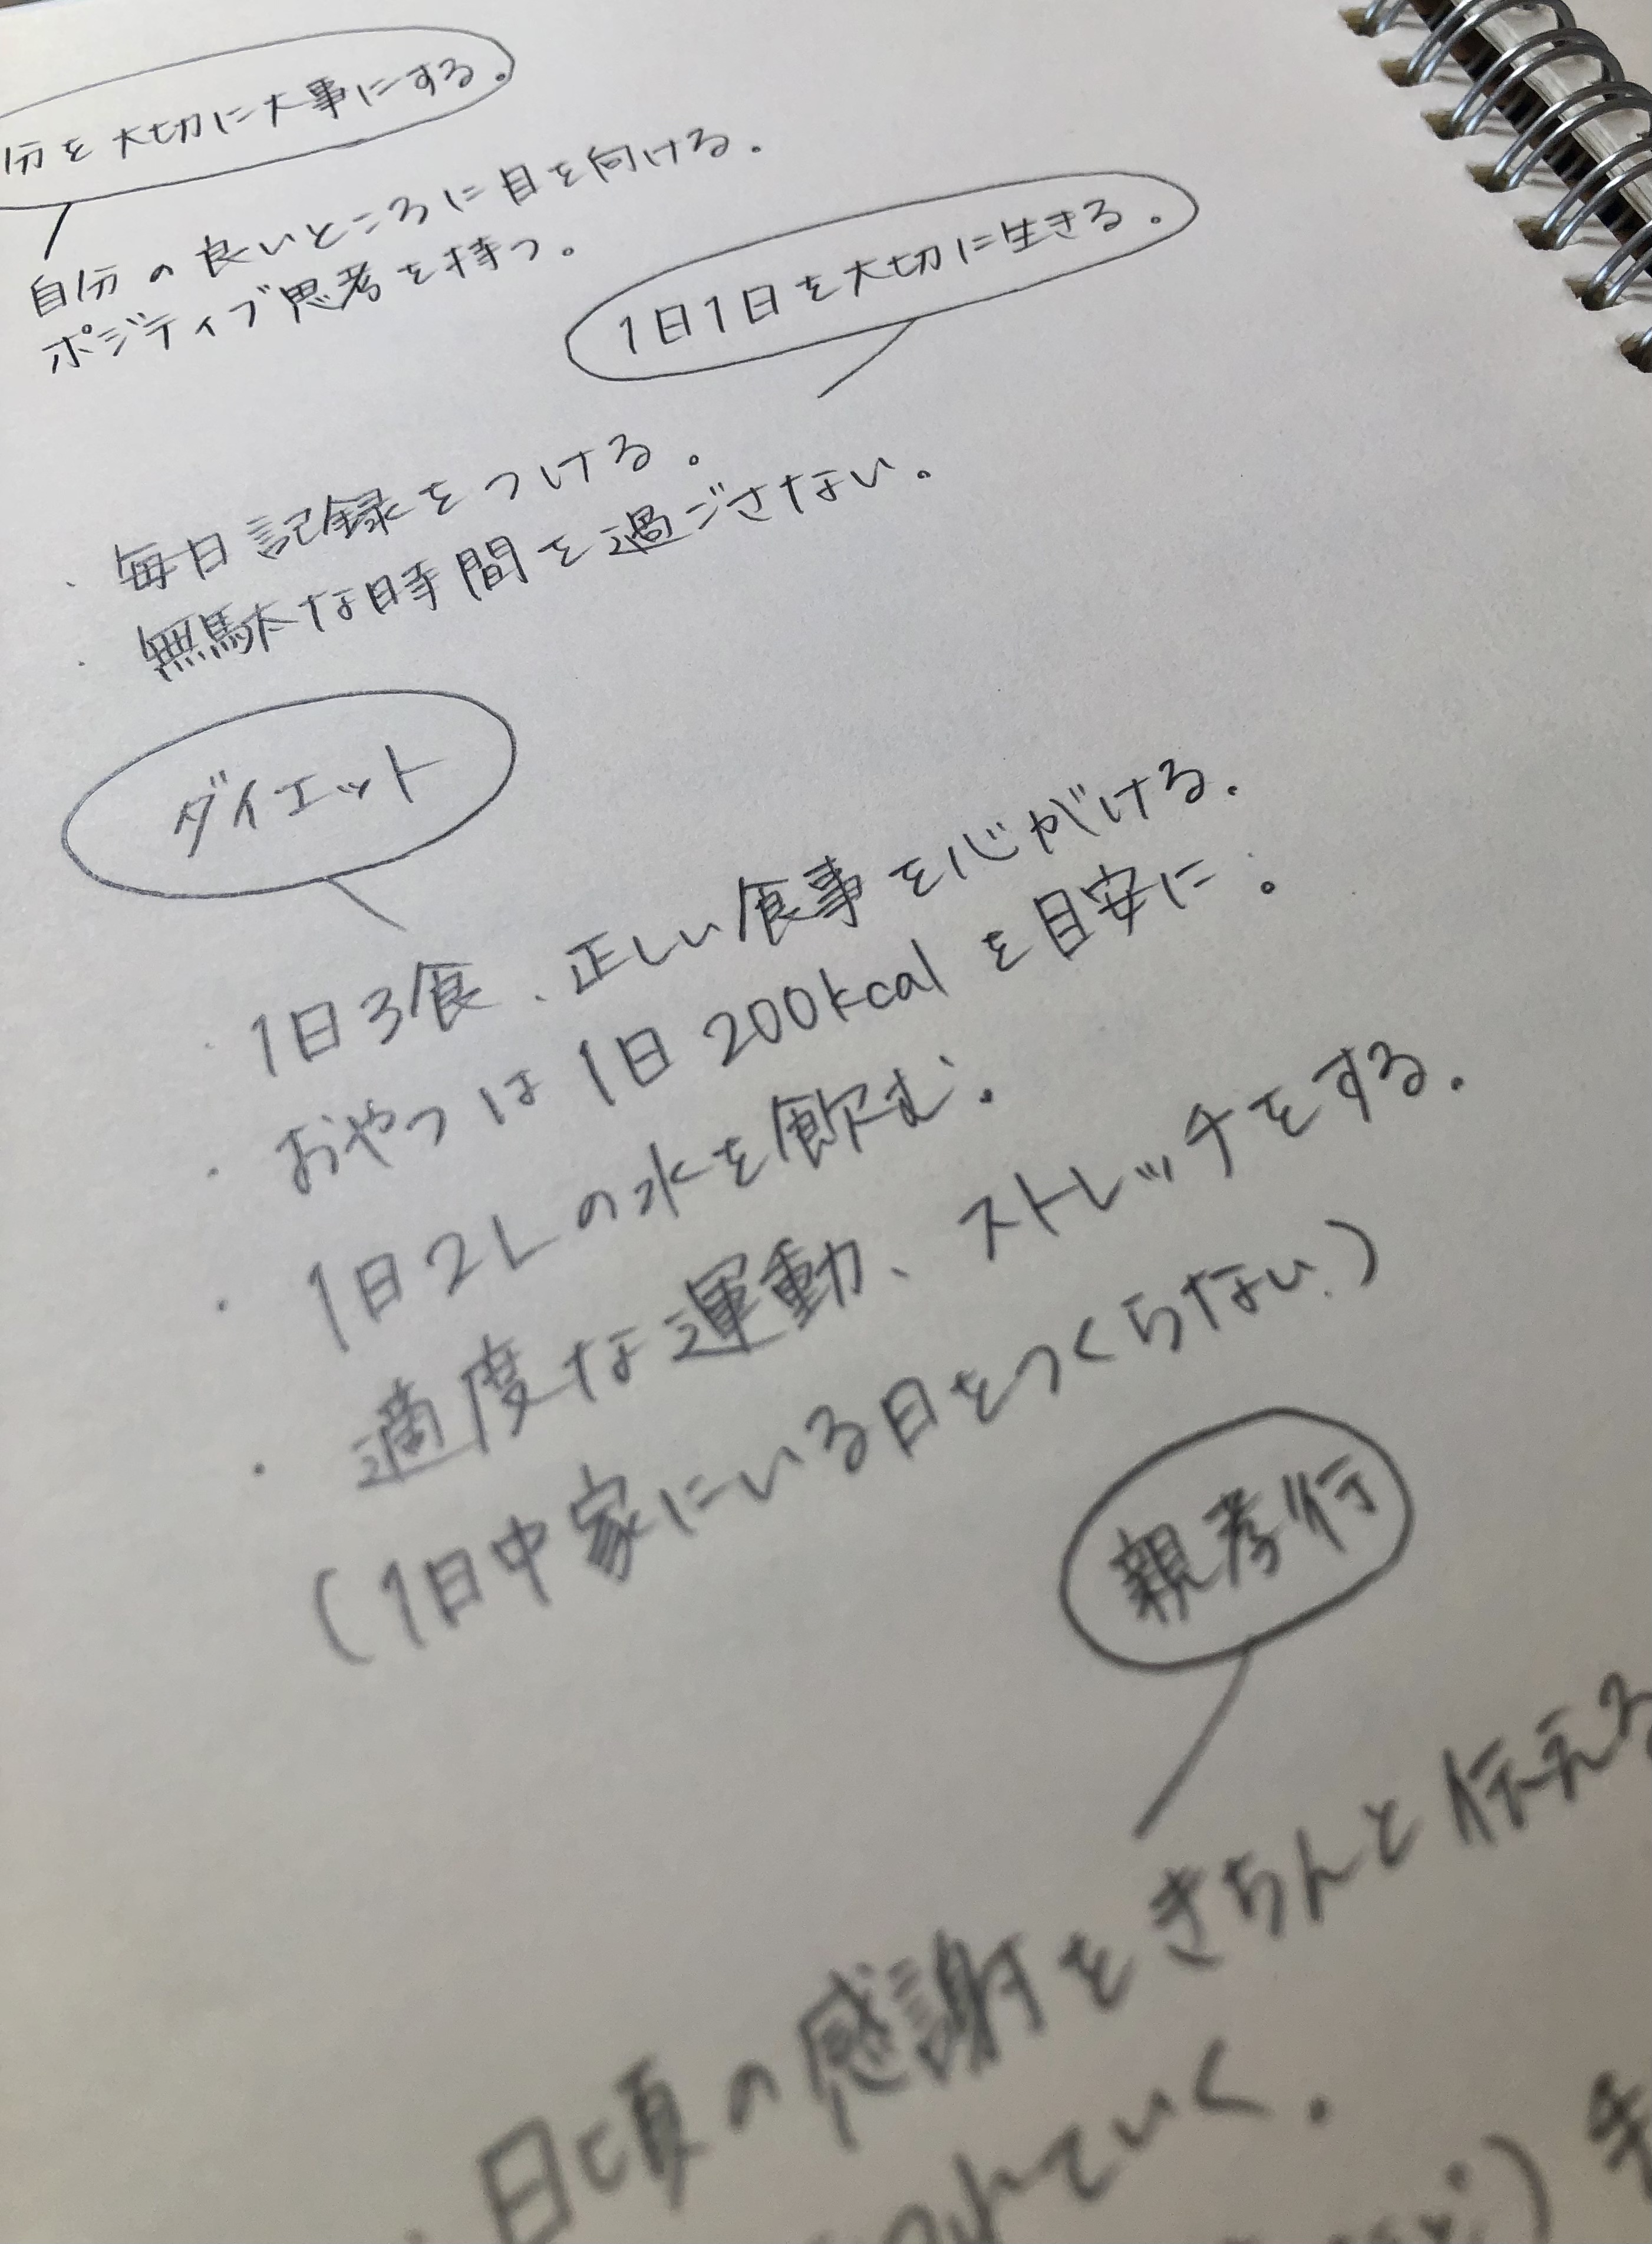 分を大切に大事にする。
自分の良いところに目を向ける。
ポジティブ思考を持つ。
1日1日を大切に生きる。
・毎日記録をつける。
・無駄な時間を過ごさない。
ダイエット
・1日3食、正しい食事を心がける。
・おやつは1日200kcalを目安に。
・1日2Lの水を飲む。
・適度な運動、ストレッチをする。
(1日中家にいる日をつくらない。)
親孝行
・日頃の感謝をきちんと伝える
ていく。